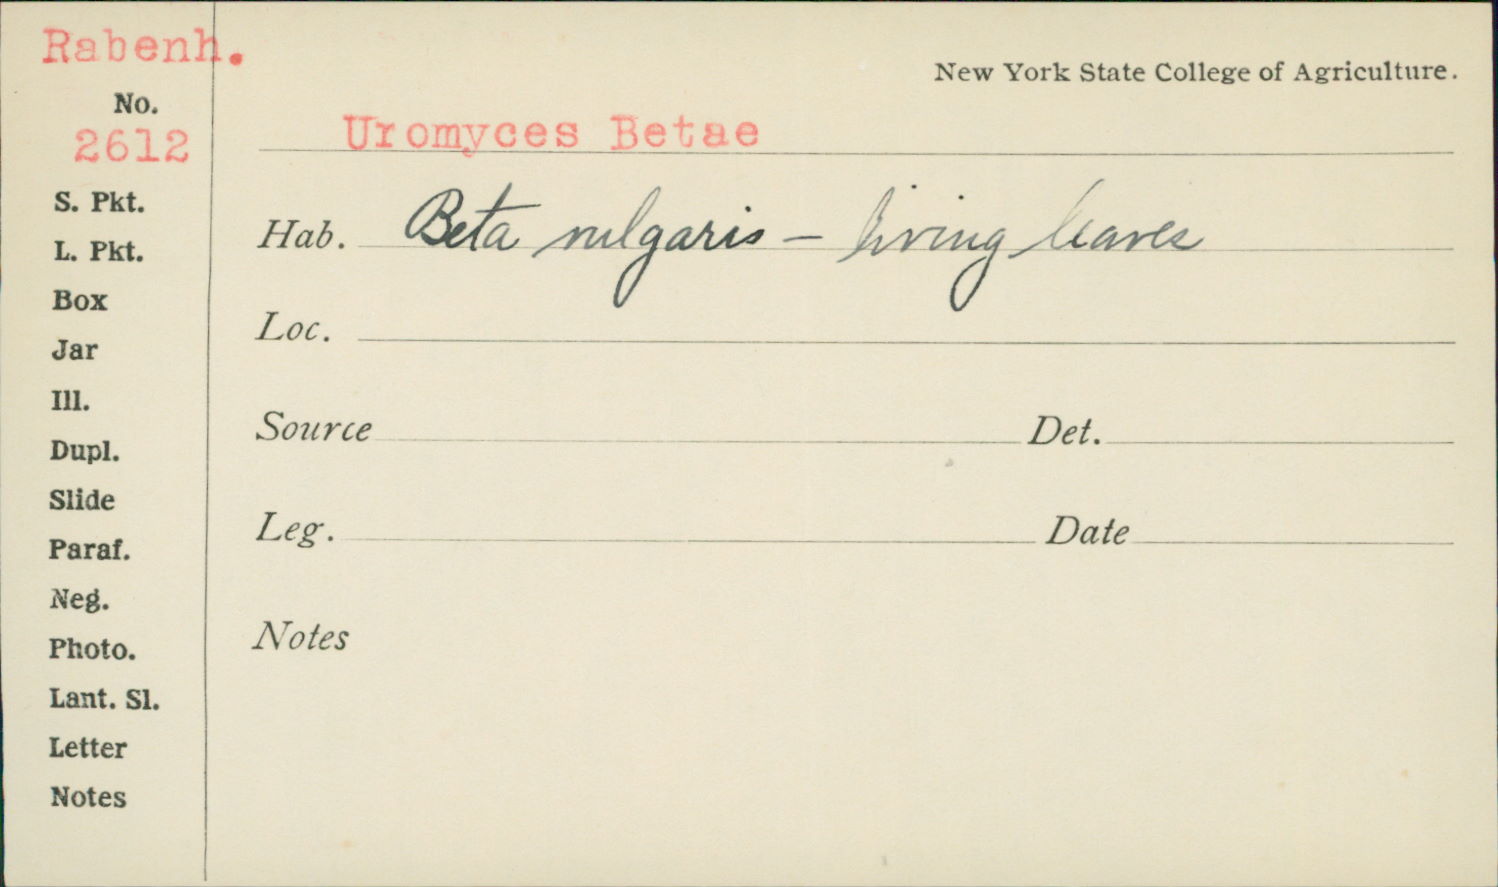 Rabenh.
New York State College of Agriculture.
No.
2612
Uromyces Betae
S. Pkt.
L. Pkt.
Box
Jar
Ill.
Dupl.
Slide
Paraf.
Neg.
Photo.
Lant. Sl.
Letter
Notes
Hab. Beta vulgaris – living leaves
Loc.
Source Det.
Leg. Date
Notes